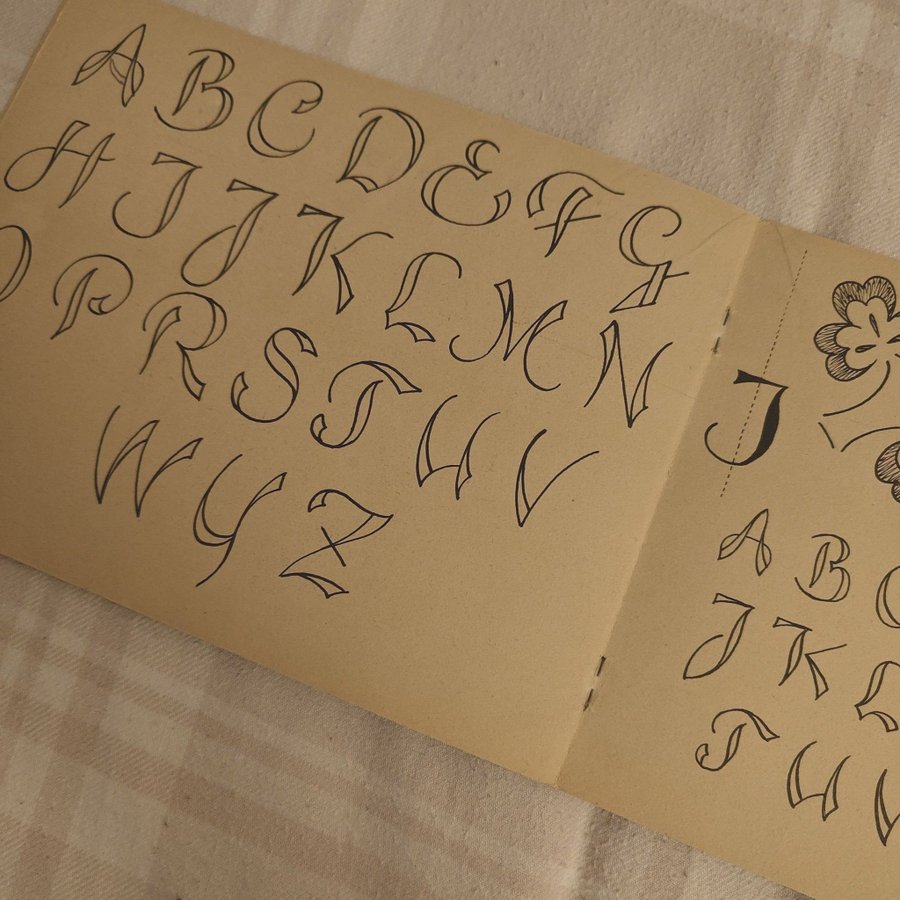 A B C D E F G
H I J K L M N
O P R S T U V
W Y Z
J
A B C
J K L
T U V